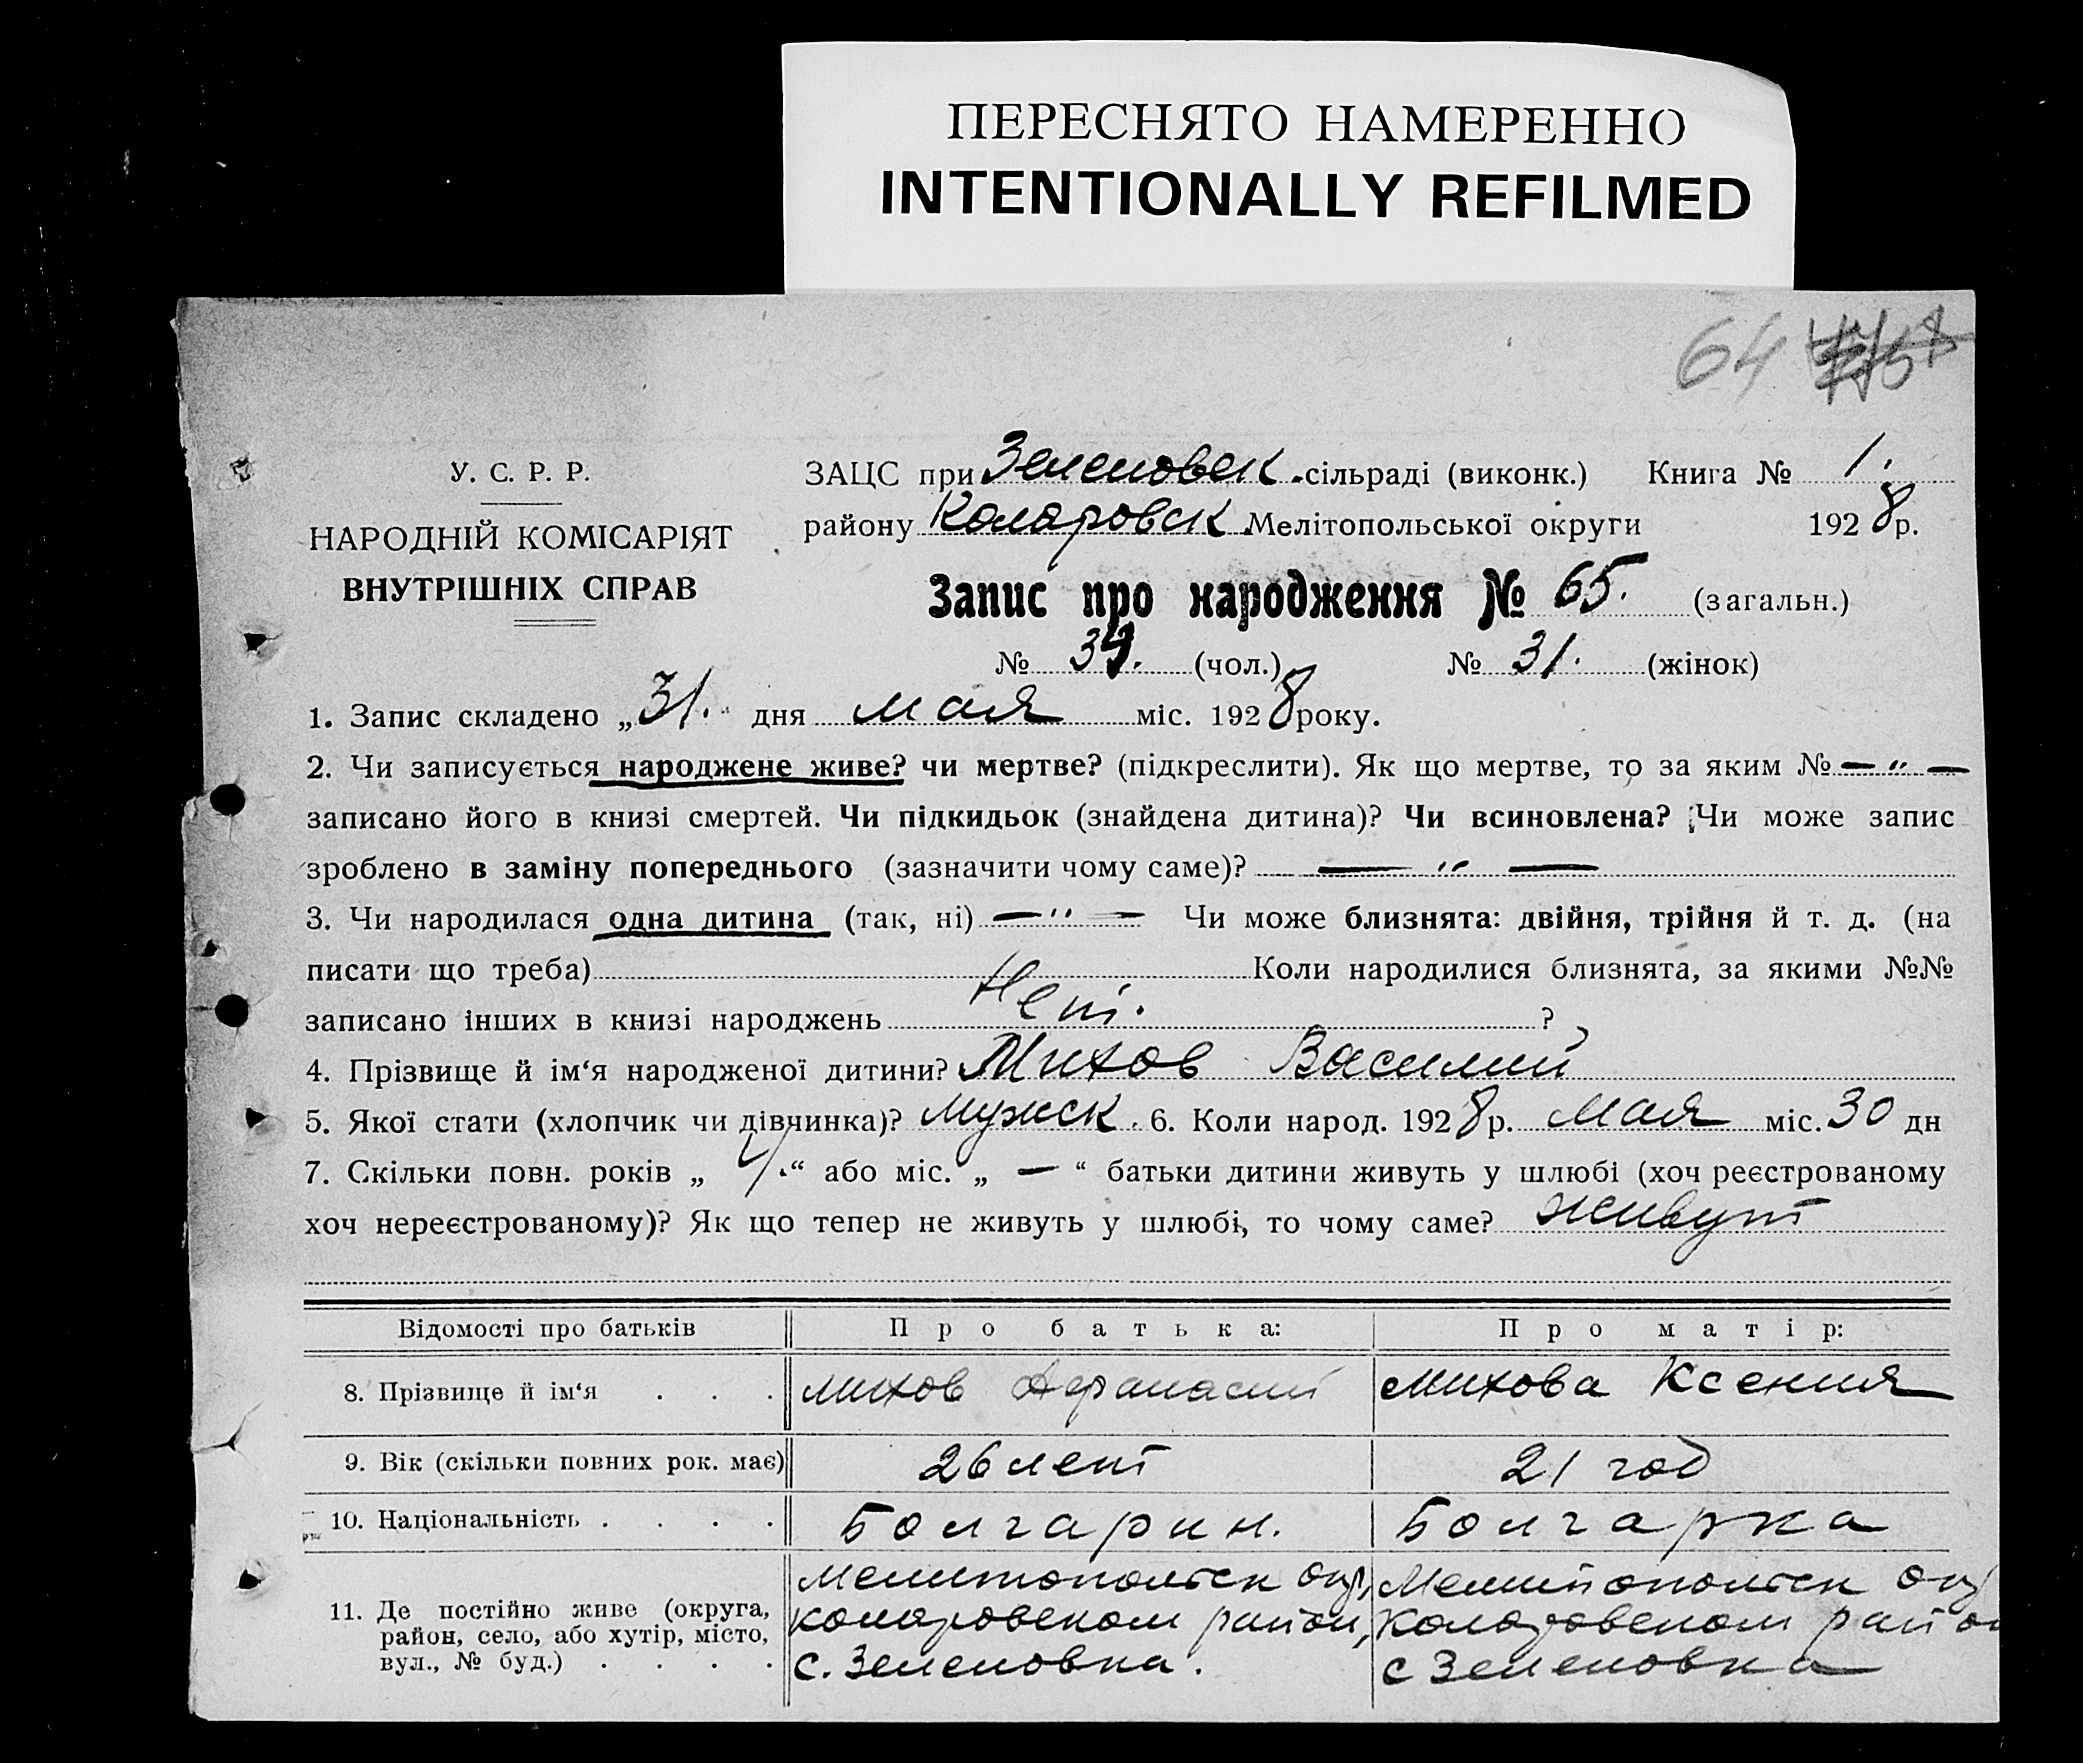 ПЕРЕСНЯТО НАМЕРЕННО
INTENTIONALLY REFILMED
64
У. С. Р. Р.
НАРОДНІЙ КОМІСАРІЯТ
ВНУТРІШНІХ СПРАВ
ЗАЦС при Зеленовск -сільраді (виконк.) Книга № 1.
району Коларовск Мелітопольської округи 1928 р.
Запис про народження № 65. (загальн.)
№ 34. (чол.) № 31. (жінок)
1. Запис складено „31." дня мая міс. 1928 року.
2. Чи записується народжене живе? чи мертве? (підкреслити). Як що мертве, то за яким № — " —
записано його в книзі смертей. Чи підкидьок (знайдена дитина)? Чи всиновлена? Чи може запис
зроблено в заміну попереднього (зазначити чому саме)? — " —
3. Чи народилася одна дитина (так, ні) — " — Чи може близнята: двійня, трійня й т. д. (на
писати що треба) Коли народилися близнята, за якими №№
записано інших в книзі народжень Нет. ?
4. Прізвище й ім‘я народженої дитини? Михов Василий
5. Якої стати (хлопчик чи дівчинка)? Мужск. 6. Коли народ. 1928 р. Мая міс. 30 дн
7. Скільки повн. років „ 4. “ або міс. „ — “ батьки дитини живуть у шлюбі (хоч реєстрованому
хоч нереєстрованому)? Як що тепер не живуть у шлюбі, то чому саме? Живут
Відомості про батьків Про батька: Про матір:
8. Прізвище й ім‘я . . . Михов Афанасий Михова Ксения
9. Вік (скільки повних рок. має) 26 лет 21 год
10. Національність . . . . Болгарин. Болгарка
11. Де постійно живе (округа, район, село, або хутір, місто, вул., № буд.) . . . .
Мелитопольск окр, Коларовском район, с. Зеленовка.
Мелитопольск окр Коларовском район с Зеленовка